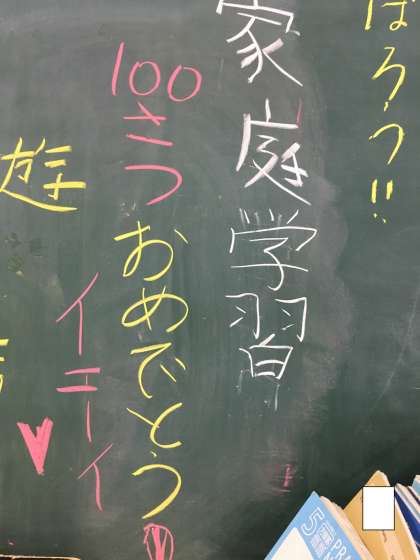 ばろう!!
家庭学習
100さつ
おめでとう
イエーイ
遊
5